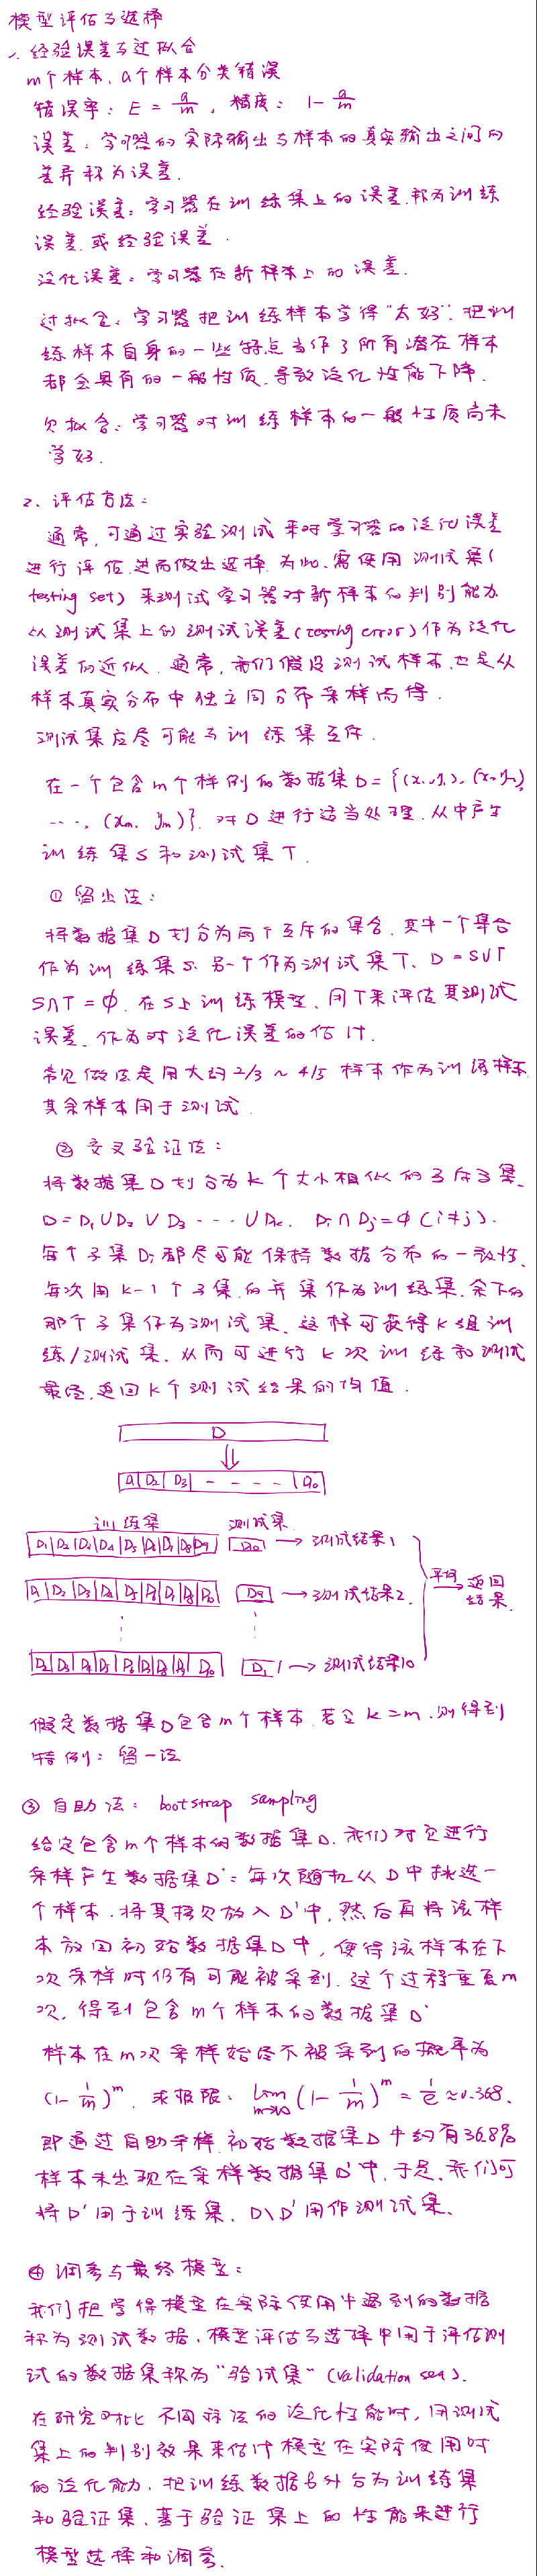 模型评估与选择
1. 经验误差与过拟合
m个样本, a个样本分类错误
错误率: E = a/m , 精度: 1 - a/m
误差: 学习器的实际输出与样本的真实输出之间的
差异称为误差.
经验误差: 学习器在训练集上的误差, 称为训练
误差或经验误差.
泛化误差: 学习器在新样本上的误差.
过拟合: 学习器把训练样本学得"太好", 把训
练样本自身的一些特点当作了所有潜在样本
都会具有的一般性质, 导致泛化性能下降.
欠拟合: 学习器对训练样本的一般性质尚未
学好.
2、评估方法:
通常, 可通过实验测试来对学习器的泛化误差
进行评估, 进而做出选择. 为此, 需使用测试集(
testing set) 来测试学习器对新样本的判别能力
以测试集上的测试误差(testing error) 作为泛化
误差的近似. 通常, 我们假设测试样本也是从
样本真实分布中独立同分布采样而得.
测试集应尽可能与训练集互斥.
在一个包含m个样例的数据集D = {(x₁,y₁), (x₂,y₂)
···, (xm, ym)}, 对D进行适当处理, 从中产生
训练集S和测试集T.
① 留出法:
将数据集D划分为两个互斥的集合, 其中一个集合
作为训练集S, 另一个作为测试集T、D = S∪T
S∩T = ϕ. 在S上训练模型, 用T来评估其测试
误差, 作为对泛化误差的估计.
常见做法是用大约2/3 ~ 4/5 样本作为训练样本
其余样本用于测试.
② 交叉验证法:
将数据集D划分为k个大小相似的互斥子集.
D = D₁∪D₂∪D₃ ··· ∪Dk. Di∩Dj = ϕ (i≠j).
每个子集Di都尽可能保持数据分布的一致性.
每次用k-1个子集的并集作为训练集, 余下的
那个子集作为测试集, 这样可获得k组训
练/测试集, 从而可进行k次训练和测试
最终返回k个测试结果的均值.
D
D₁ D₂ D₃ - - - - D₁₀
训练集 测试集
D₁ D₂ D₃ D₄ D₅ D₆ D₇ D₈ D₉ D₁₀ → 测试结果1
D₁ D₂ D₃ D₄ D₅ D₆ D₇ D₈ D₁₀ D₉ → 测试结果2.
平均 → 返回
结果.
D₂ D₃ D₄ D₅ D₆ D₇ D₈ D₉ D₁₀ D₁ → 测试结果10
假定数据集D包含m个样本, 若令k=m, 则得到
特例: 留一法
③ 自助法: bootstrap sampling
给定包含m个样本的数据集D, 我们对它进行
采样产生数据集D': 每次随机从D中挑选一
个样本, 将其拷贝放入D'中, 然后再将该样
本放回初始数据集D中, 使得该样本在下
次采样时仍有可能被采到. 这个过程重复m
次, 得到包含m个样本的数据集D'
样本在m次采样始终不被采到的概率为
(1-1/m)^m, 求极限: lim m→∞ (1-1/m)^m = 1/e ≈0.368.
即通过自助采样, 初始数据集D中约有36.8%
样本未出现在采样数据集D'中, 于是, 我们可
将D'用于训练集, D\D'用作测试集.
④ 调参与最终模型:
我们把学得模型在实际使用中遇到的数据
称为测试数据, 模型评估与选择中用于评估测
试的数据集称为"验试集" (validation set).
在研究对比不同算法的泛化性能时, 用测试
集上的判别效果来估计模型在实际使用时
的泛化能力, 把训练数据另外分为训练集
和验证集, 基于验证集上的性能来进行
模型选择和调参.